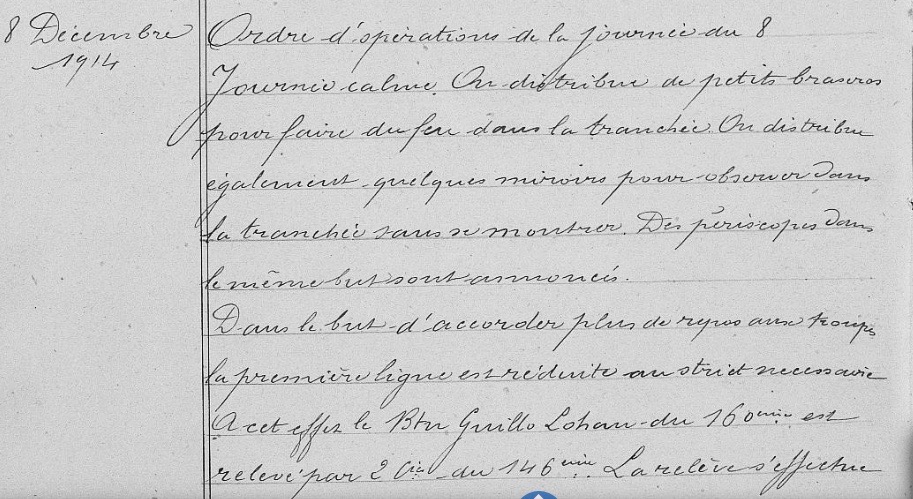 8 Décembre
1914
Ordre d'opérations de la journée du 8
Journée calme. On distribue de petits braseros
pour faire du feu dans la tranchée. On distribue
également quelques miroirs pour observer dans
la tranchée sans se montrer. Des périscopes dans
le même but sont annoncés.
Dans le but d'accorder plus de repos aux troupes
la première ligne est réduite au strict necessaire
A cet effet le Btn Guillo Lohan du 160eme est
relevé par 2 Cies du 146eme. La relève s'effectue